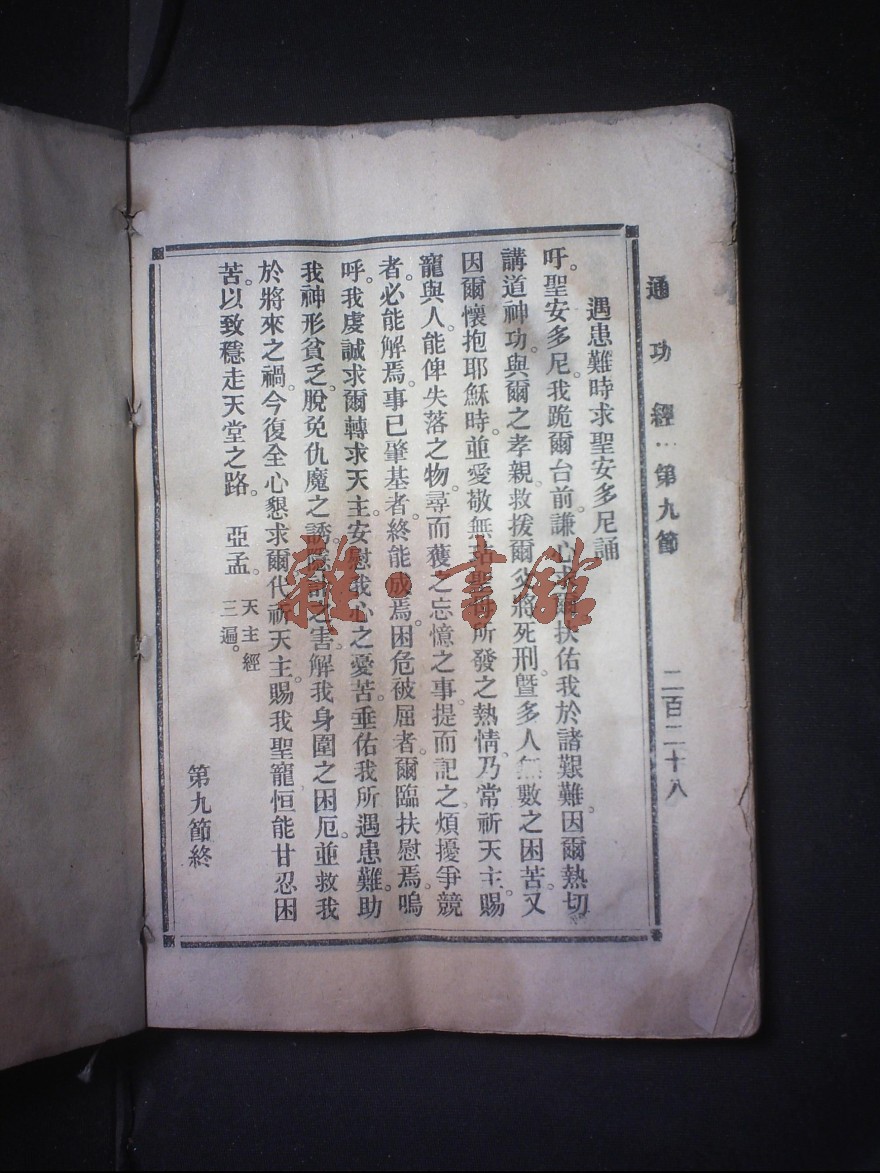 通功經…第九節 二百二十八
遇患難時求聖安多尼誦
吁。聖安多尼。我跪爾台前。謙心求爾扶佑我於諸艱難。因爾熱切
講道神功。與爾之孝親。救拨爾父將死刑。曁多人無數之困苦。又
因爾懷抱耶穌時。並愛敬無玷聖母所發之熱情。乃常祈天主。賜
寵與人。能俾失落之物。尋而獲之。忘憶之事。提而記之。煩擾爭競
者。必能解焉。事已肇基者。終能成焉。困危被屈者。爾臨扶慰焉。嗚
呼。我虔誠求爾轉求天主。安慰我心之憂苦。垂佑我所遇患難。助
我神形貧乏。脫免仇魔之誘。之害。解我身圍之困厄。並救我
於將來之禍。今復全心懇求爾代祈天主。賜我聖寵。恒能甘忍困
苦。以致穩走天堂之路。 亞孟。 天主經
三遍。
第九節終
雜·書館